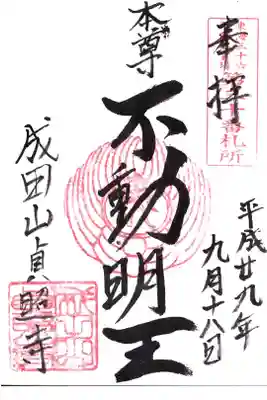 奉拝
番札所
平成廿九年
九月十八日
本尊
不動明王
成田山貞照寺